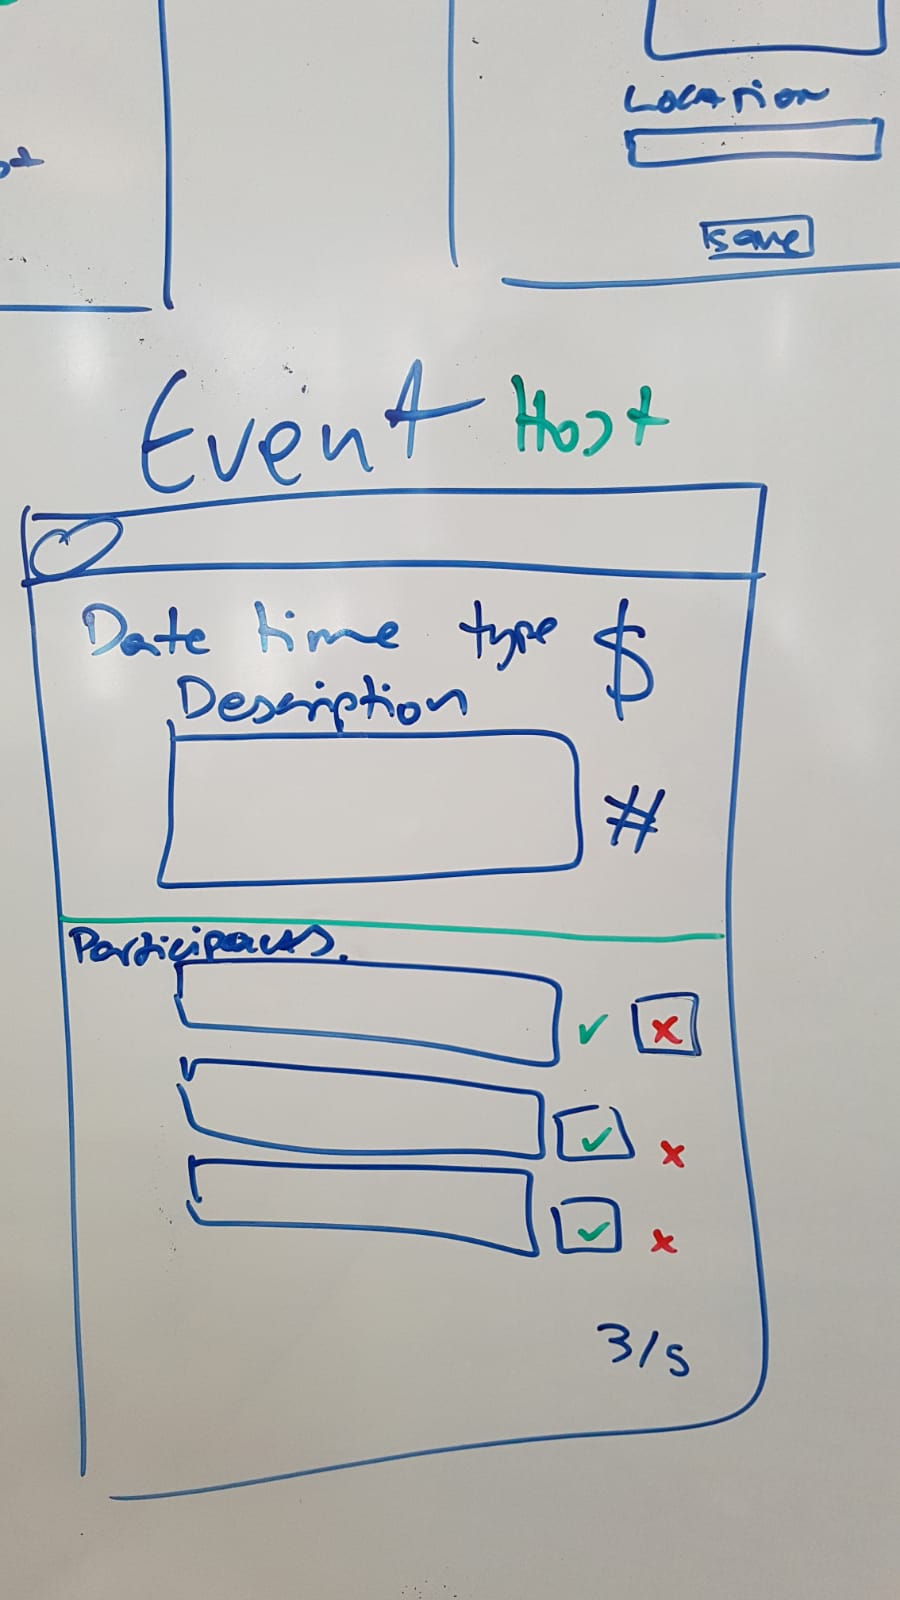 LOCATION
save
Event Host
Date time type $
Description
#
Participants.
3/5